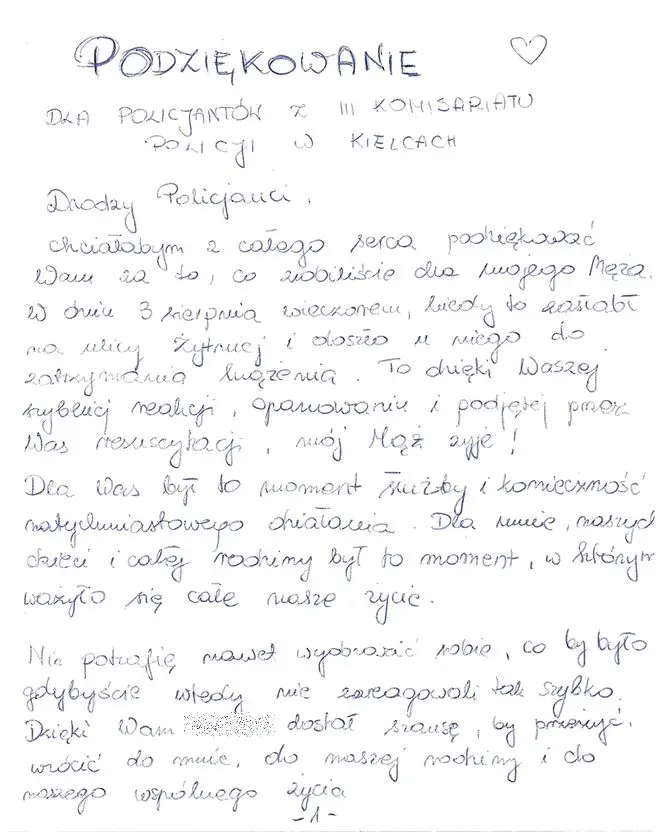 PODZIĘKOWANIE
DLA POLICJANTÓW Z III KOMISARIATU
POLICJI W KIELCACH
Drodzy Policjanci,
chciałabym z całego serca podziękować
Wam za to, co zrobiliście dla mojego Męża.
W dniu 3 sierpnia wieczorem, kiedy to zasłabł
na ulicy Żytniej i doszło u niego do
zatrzymania krążenia. To dzięki Waszej
szybkiej reakcji, opanowaniu i podjętej przez
Was resuscytacji, mój Mąż żyje!
Dla Was był to moment służby i konieczność
natychmiastowego działania. Dla mnie, naszych
dzieci i całej rodziny był to moment, w którym
ważyło się całe nasze życie.
Nie potrafię nawet wyobrazić sobie, co by było
gdybyście wtedy nie zareagowali tak szybko.
Dzięki Wam dostał szansę, by przeżyć,
wrócić do mnie, do naszej rodziny i do
naszego wspólnego życia
-1-